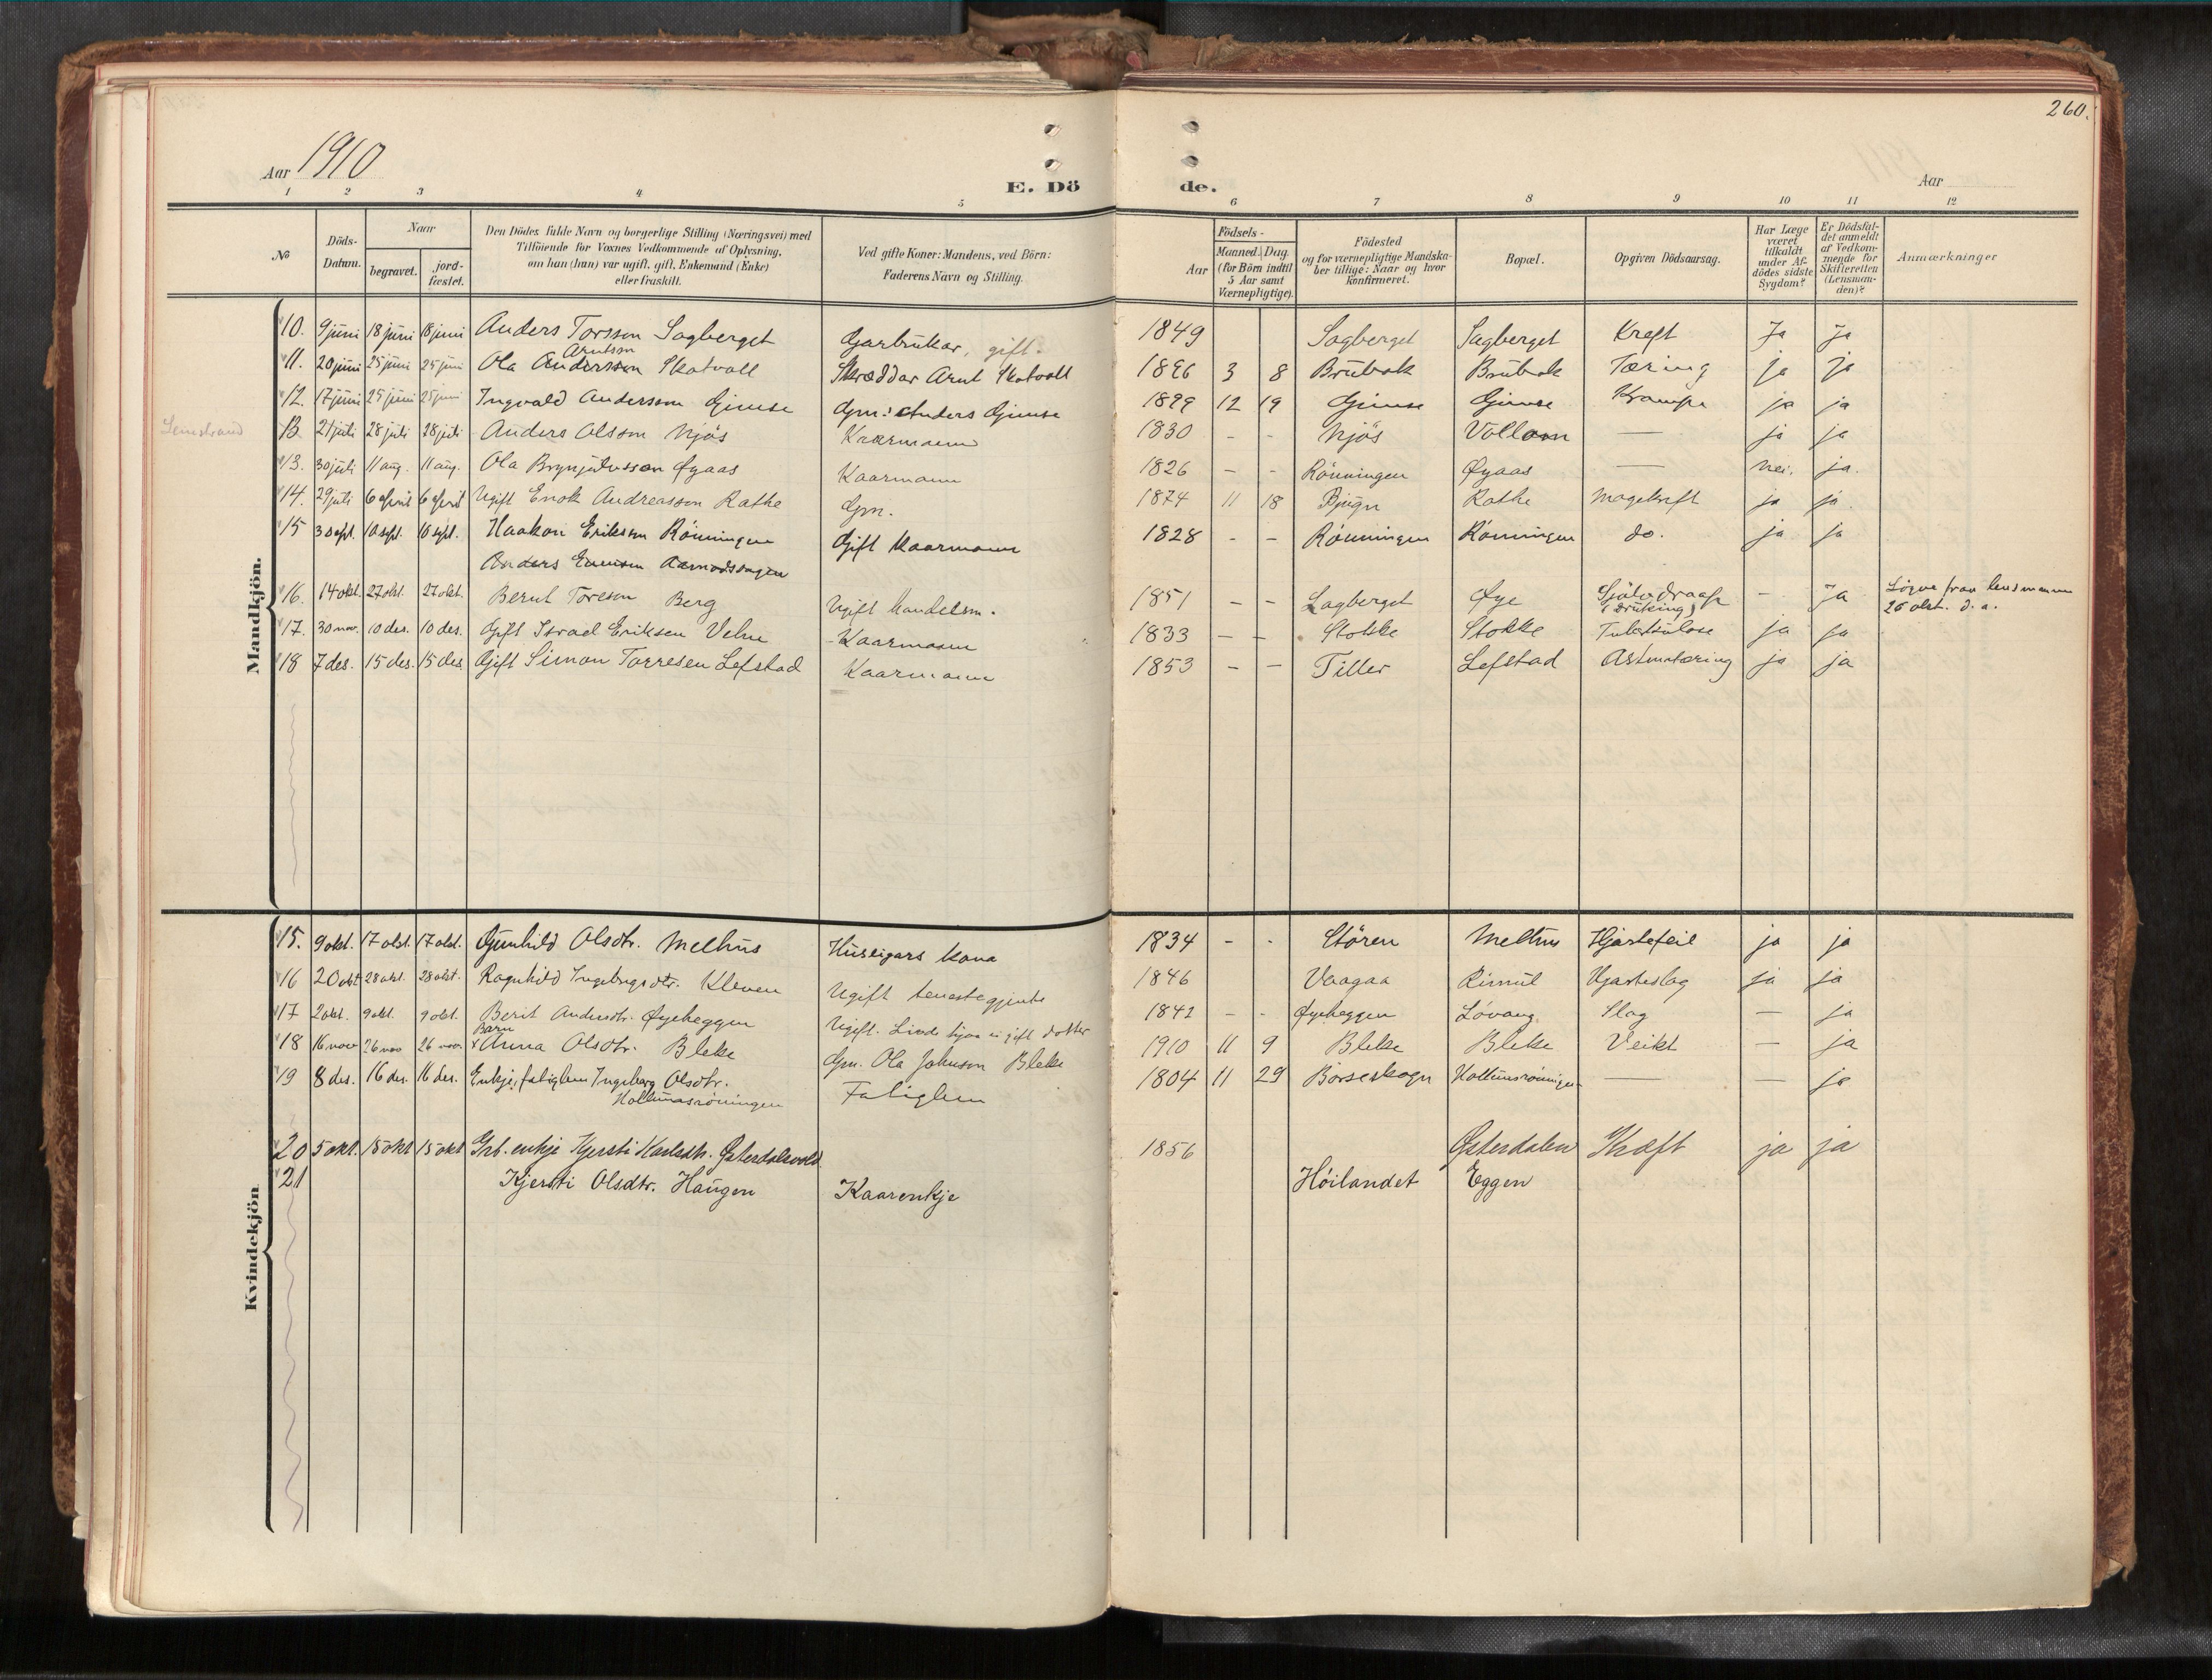 260.
Aar 1910
E. Dö de.
Aar
1 2 3 4 5 6 7 8 9 10 11 12
№
Döds-Datum.
Naar
begravet.
jord-fæstet.
Den Dödes fulde Navn og borgerlige Stilling (Næringsvei) med
Tilföiende for Voxnes Vedkommende af Oplysning,
om han (hun) var ugift, gift, Enkemand (Enke)
eller fraskilt.
Ved gifte Koner: Mandens, ved Börn:
Faderens Navn og Stilling.
Födsels-
Aar
Maaned. Dag.
(for Börn indtil
5 Aar samt
Værnepligtige).
Födested
og for værnepligtige Mandska-
ber tillige: Naar og hvor
konfirmeret.
Bopæl.
Opgiven Dödsaarsag.
Har Læge
været
tilkaldt
under Af-
dödes sidste
Sygdom?
Er Dödsfal-
det anmeldt
af Vedkom-
mende for
Skifteretten
(Lensman-
den)?
Anmærkninger
Mandkjön.
10. 9 juni 18 juni 18 juni Anders Torsson Sagberget Garbrukar, gift. 1849 Sagberget Sagberget Kreft Ja ja
Arntson
11. 20 juni 25 juni 25 juni Ola Andersson Skatvoll Skræddar Arnt Skatvoll 1896 3 8 Brubak Brubak Tæring ja ja
12. 17 juni 25 juni 25 juni Ingvald Anderssen Gimse Gm: Anders Gimse 1899 12 19 Gimse Gimse Krampe ja ja
13. 21 juli 28 juli 28 juli Anders Olsson Mjös Kaarmann 1830 - - Mjös - ja ja
13. 30 juli 11 aug. 11 aug. Ola Øyaas Kaarmann 1826 - - Rönningen Øyaas - nei. ja.
14. 29 juli 6 april 6 april Ugift Enok Andreasson Rathe Gm. 1874 11 18 Bjugn Rathe Magekreft ja ja.
15 3 sept. 10 sept. 10 sept. Haakon Eriksen Rönningen Gift kaarmann 1828 - - Rönningen Rönningen do. ja ja
Anders
16. 14 okt. 27 okt. 27 okt. Bernt Toresen Berg Ugift handelsm. 1851 - - Sagberget Øye Sjölvdraap - ja
(drukning)
26 okt. d. a.
17. 30 nov. 10 des. 10 des. Gift Israel Eriksen Velve Kaarmann 1833 - - Stokke Stokke Tuberkulose ja ja
18 7 des. 15 des. 15 des Gift Simon Torresen Lefstad Kaarmann 1853 - - Tiller Lefstad Astmatæring ja ja
Kvindekjön
15. 9 okt. 17 okt. 17 okt. Gunhild Olsdtr. Melhus Huseigars kona 1834 - - Stören Melhus Hjartefeil ja ja
16 20 okt 28 okt. 28 okt. Ragnhild Ingebrigtsdtr. Kleven Ugift tenestegjente 1846 Vaagaa Rimul Hjarteslag ja ja
17 2 okt. 9 okt. 9 okt. Berit Andersdtr. Øyeheggen Ugift. Livde hjaa ei gift dotter 1842 - - Øyeheggen Lövang Slag - ja
Barn
18 16 nov 26 nov 26 nov Anna Olsdtr. Bleke Gm. Ola Johnson Bleke 1910 11 9 Bleke Bleke Veikt - ja
19 8 des. 16 des. 16 des. Enkje, fatiglem Ingeborg Olsdtr. Fatiglem 1804 11 29 Börseskogn - - ja
20 5 okt 15 okt 15 okt Grb. enkje Kjersti Karlsdtr. Østerdalsvold 1856 Østerdalen Kræft ja ja
21 Kjersti Olsdtr. Haugen Kaarenkje Höilandet Eggen